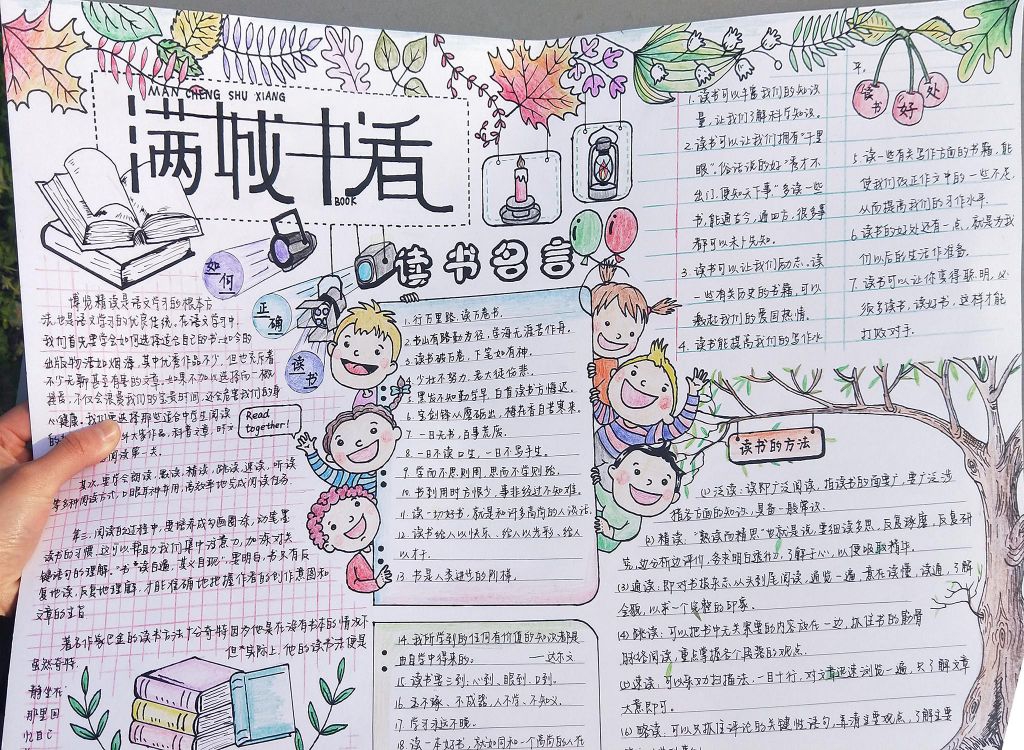 MAN CHENG SHU XIANG
满城书香
BOOK
如何
正确
读书
博览精读是语文学习的根本方
法,也是语文学习的优良传统。在语文学习中,
我们首先要学会如何选择适合自己的书。如今的
出版物浩如烟海,其中优秀作品不少,但也充斥着
不少无聊甚至有害的文章。如果不加以选择而一概
接受,不仅会浪费我们的宝贵时间,还会危害我们的身
心健康。我们要选择那些适合中学生阅读
大家作品,科普文章,时文
阅读第一关。
其次,要学会朗读、默读、精读、跳读、速读、听读
等多种阅读方式,口眼耳神并用,高效率地完成阅读任务。
第三,阅读的过程中,要培养成勾画圈涂,动笔墨
读书的习惯。这可以帮助我们集中注意力,加深对关
键语句的理解。"书读百遍,其义自现",要明白,书只有反
复地读,反复地理解,才能准确地把握作者的创作意图和
文章的主旨
著名作家巴金的读书方法十分奇特因为他是在没有书本的情况下
虽然奇特 但实际上,他的读书法便是
静坐在
那里回
忆自己
Read
together!
读书名言
1. 行万里路,读万卷书。
2. 书山有路勤为径,学海无涯苦作舟。
3. 读书破万卷,下笔如有神。
4. 少壮不努力,老大徒伤悲。
5. 黑发不知勤学早,白首读书方悔迟。
6. 宝剑锋从磨砺出,梅花香自苦寒来。
7. 一日无书,百事荒废。
8. 一日不读口生,一日不写手生。
9. 学而不思则罔,思而不学则殆。
10. 书到用时方恨少,事非经过不知难。
11. 读一切好书,就是和许多高尚的人说话。
12. 读书给人以快乐、给人以光彩、给人
以才干。
13. 书是人类进步的阶梯。
14. 我所学到的任何有价值的知识都是
由自学中得来的。 ——达尔文
15. 读书要三到:心到、眼到、口到。
16. 玉不琢、不成器,人不学、不知义。
17. 学习永远不晚。
18. 读一本好书,就如同和一个高尚的人在
1. 读书可以丰富我们的知识
量,让我们了解科学知识。
2. 读书可以让我们拥有"千里
眼"。俗话说的好"秀才不
出门,便知天下事"多读一些
书,能通古今,通四方,很多事
都可以未卜先知。
3. 读书可以让我们励志。读
一些有关历史的书籍,可以
激起我们的爱国热情。
4. 读书能提高我们的写作水
平。
读书好处
5. 读一些有关写作方面的书籍,能
使我们改正作文中的一些不足,
从而提高我们的习作水平。
6. 读书的好处还有一点,就是为我
们以后的生活作准备。
7. 读书可以让你变得聪明,必
须多读书,读好书,这样才能
打败对手。
读书的方法
(1) 泛读:读即广泛阅读,指读书的面要广,要广泛涉
指各方面的知识,具备一般常识。
(2) 精读:"熟读而精思"也就是说,要细读多思,反复琢磨,反复研
究,边分析边评价,务求明白透彻,了解于心,以便吸取精华。
(3) 通读:即对书报杂志从头到尾阅读,通览一遍,意在读懂,读通,了解
全貌,以求一个完整的印象。
(4) 跳读:可以把书中无关紧要的内容放在一边,抓住书的筋骨
脉络阅读,重点掌握各个段落的观点。
(5) 速读:可以采取扫描法,一目十行,对文章迅速浏览一遍,只了解文章
大意即可。
(6) 略读:可以只抓住评论的关键性语句,弄清主要观点,了解主要